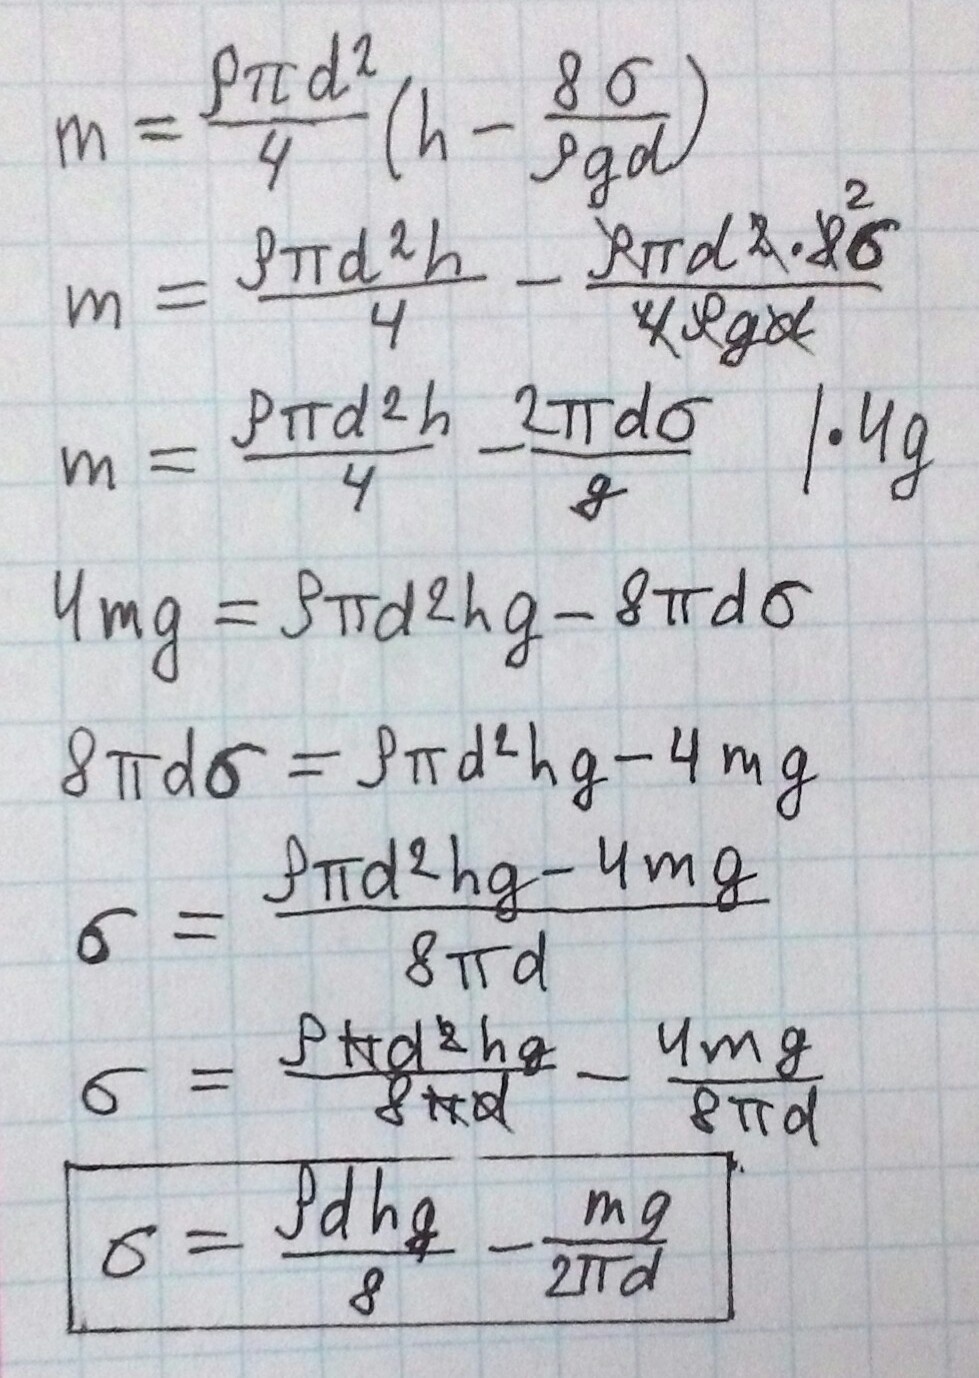 m = ρπd²/4 (h − 8σ/ρgd)
m = ρπd²h/4 − ρπd²·8²σ/4ρgd
m = ρπd²h/4 − 2πdσ/g |·4g
4mg = ρπd²hg − 8πdσ
8πdσ = ρπd²hg − 4mg
σ = ρπd²hg − 4mg/8πd
σ = ρπd²hg/8πd − 4mg/8πd
σ = ρdhg/8 − mg/2πd